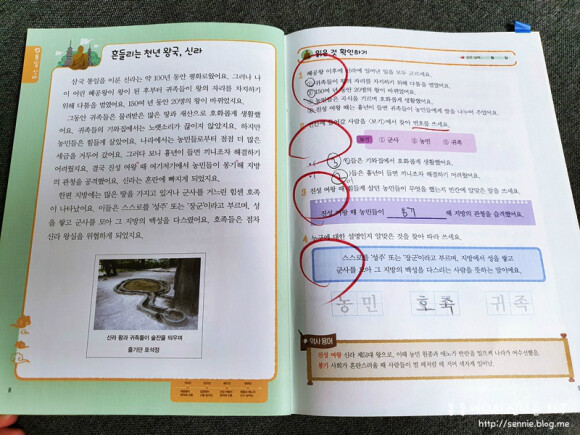 흔들리는 천년 왕국, 신라
삼국 통일을 이룬 신라는 약 100년 동안 평화로웠어요. 그러나 나
이 어린 혜공왕이 왕이 된 후부터 귀족들이 왕의 자리를 차지하기
위해 다툼을 벌였어요. 150여 년 동안 20명의 왕이 바뀌었지요.
그동안 귀족들은 물려받은 많은 땅과 재산으로 호화롭게 생활했
어요. 귀족들의 기와집에서는 노랫소리가 끊이지 않았지요. 하지만
농민들은 힘들게 살았어요. 나라에서는 농민들로부터 점점 더 많은
세금을 거두어 갔어요. 그러다 보니 흉년이 들면 끼니조차 해결하기
어려웠지요. 결국 진성 여왕 때 여기저기에서 농민들이 봉기해 지방
의 관청을 공격했어요. 신라는 혼란에 빠지게 되었지요.
한편 지방에는 많은 땅을 가지고 있거나 군사를 거느린 힘센 호족
이 나타났어요. 이들은 스스로를 '성주' 또는 '장군'이라고 부르며, 성
을 쌓고 군사를 모아 그 지방의 백성을 다스렸어요. 호족들은 점차
신라 왕실을 위협하게 되었지요.
신라 왕과 귀족들이 술잔을 띄우며
즐기던 포석정
8
읽은 것 확인하기
1 혜공왕 이후에 신라에 일어난 일을 모두 고르세요.
귀족들이 왕의 자리를 차지하기 위해 다툼을 벌였어요.
150여 년 동안 20명의 왕이 바뀌었어요.
농민들은 귀족을 기르며 호화롭게 생활했어요.
진성 여왕 때는 흉년이 들면 귀족들이 농민들에게 쌀을 나누어 주었어요.
2 빈칸에 들어갈 사람을 <보기>에서 찾아 번호를 쓰세요.
보기 ① 군사 ② 농민 ③ 귀족
)들은 기와집에서 호화롭게 생활했어요.
)들은 흉년이 들면 끼니조차 해결하기 어려웠어요.
3 진성 여왕 때 힘들게 살던 농민들이 무엇을 했는지 빈칸에 알맞은 말을 쓰세요.
진성 여왕 때 농민들이 봉기 해 지방의 관청을 습격했어요.
4 누구에 대한 설명인지 알맞은 것을 찾아 따라 쓰세요.
스스로를 '성주' 또는 '장군'이라고 부르며, 지방에서 성을 쌓고
군사를 모아 그 지방의 백성을 다스리는 사람을 뜻하는 말이에요.
농민 호족 귀족
역사 용어
진성 여왕 신라 제51대 왕으로, 이때 농민 원종과 애노가 반란을 일으켜 나라가 어수선했음.
봉기 사회가 혼란스러울 때 사람들이 벌 떼처럼 세차게 일어남.
http://sennie.blog.me